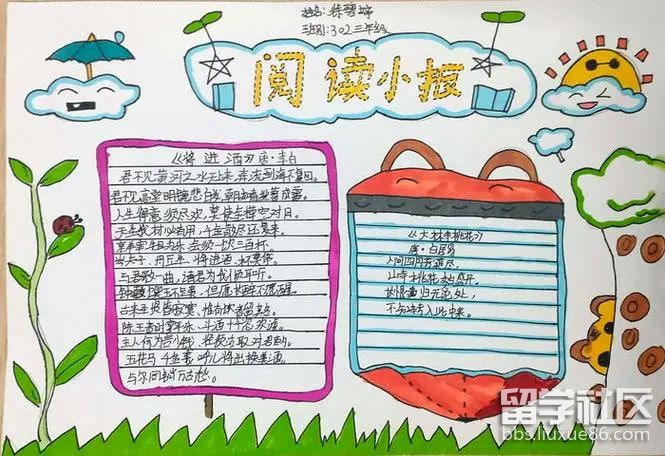 姓名:
班别:302三年级
阅读小报
《将进酒》唐·李白
君不见黄河之水天上来,奔流到海不复回。
君不见高堂明镜悲白发,朝如青丝暮成雪。
人生得意须尽欢,莫使金樽空对月。
天生我材必有用,千金散尽还复来。
烹羊宰牛且为乐,会须一饮三百杯。
岑夫子,丹丘生,将进酒,杯莫停。
与君歌一曲,请君为我倾耳听。
钟鼓馔玉不足贵,但愿长醉不愿醒。
古来圣贤皆寂寞,惟有饮者留其名。
陈王昔时宴平乐,斗酒十千恣欢谑。
主人何为言少钱,径须沽取对君酌。
五花马,千金裘,呼儿将出换美酒,
与尔同销万古愁。
《大林寺桃花》
唐·白居易
人间四月芳菲尽,
山寺桃花始盛开。
长恨春归无觅处,
不知转入此中来。
留学社区
bbs.liuxue86.com